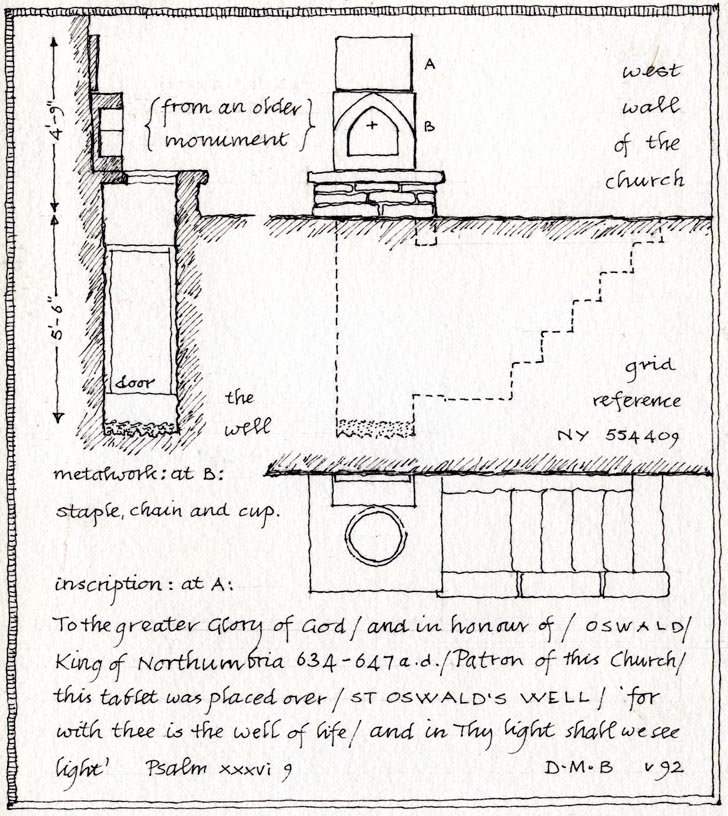 A
west
4'-9"
{from an older
wall
monument}
B
of the
church
5'-6"
door
grid
the
reference
well
NY 554409
metalwork: at B:
staple, chain and cup.
inscription: at A:
To the greater Glory of God/ and in honour of / OSWALD/
King of Northumbria 634-647 a.d./ Patron of this Church/
this tablet was placed over / ST OSWALD'S WELL / 'for
with thee is the well of life/ and in Thy light shall we see
light' Psalm xxxvi 9 D·M·B v 92